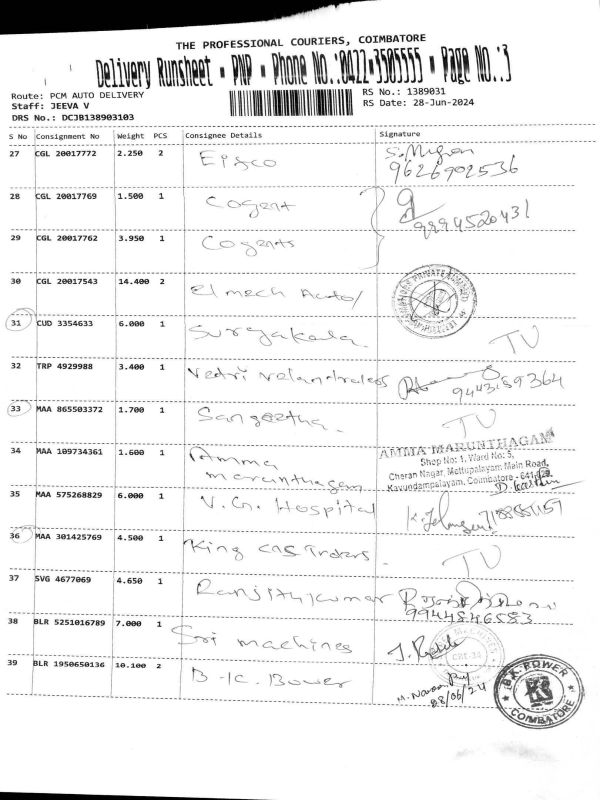 THE PROFESSIONAL COURIERS, COIMBATORE
Delivery Runsheet - PNP - Phone No.:0422-3505555 - Page No.:3
Route: PCM AUTO DELIVERY
RS No.: 1389031
Staff: JEEVA V
RS Date: 28-Jun-2024
DRS No.: DCJB138903103
S No Consignment No Weight PCS Consignee Details Signature
27 CGL 20017772 2.250 2
9626902536
28 CGL 20017769 1.500 1 Cogent
9994520431
29 CGL 20017762 3.950 1 Cogents
30 CGL 20017543 14.400 2 Elmech Auto/
31 CUD 3354633 6.000 1 Suryakala. TV
32 TRP 4929988 3.400 1 Vetri 9443159364
33 MAA 865503372 1.700 1 Sangeetha. TV
34 MAA 109734361 1.600 1 Amma
marunthagam
AMMA MARUNTHAGAM
Shop No: 1, Ward No: 5,
Cheran Nagar, Mettupalayam Main Road,
Kavundampalayam, Coimbatore - 641
35 MAA 575268829 6.000 1 V.G. Hospital
36 MAA 301425769 4.500 1 King Traders. TV
37 SVG 4677069 4.650 1 Ranjithkumar
9944846583
38 BLR 5251016789 7.000 1 Sri machines
39 BLR 1950650136 10.100 2 B.K. Bower
28/06/24
B.K. POWER
COIMBATORE